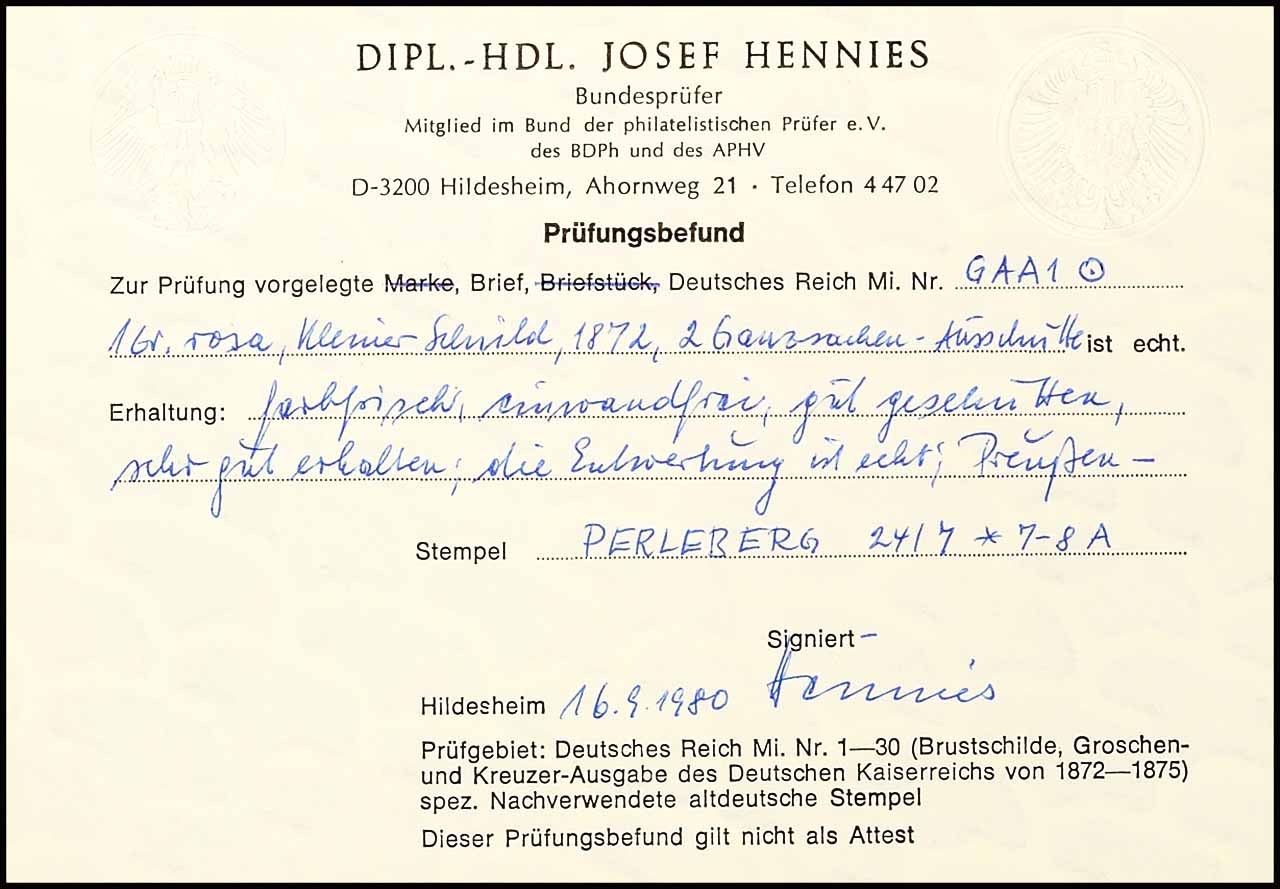 DIPL.-HDL. JOSEF HENNIES
Bundesprüfer
Mitglied im Bund der philatelistischen Prüfer e.V.
des BDPh und des APHV
D-3200 Hildesheim, Ahornweg 21 · Telefon 4 47 02
Prüfungsbefund
Zur Prüfung vorgelegte Marke, Brief, Briefstück, Deutsches Reich Mi. Nr. GAA1 ⊙
1 Gr. rosa, Kleiner Schild, 1872, 2 Ganzsachen-Ausschnitte ist echt.
Erhaltung: farbfrisch, einwandfrei, gut geschnitten,
sehr gut erhalten; die Entwertung ist echt; Preußen-
Stempel PERLEBERG 24/7 * 7-8 A
Signiert –
Hildesheim 16.9.1980 Hennies
Prüfgebiet: Deutsches Reich Mi. Nr. 1—30 (Brustschilde, Groschen-
und Kreuzer-Ausgabe des Deutschen Kaiserreichs von 1872—1875)
spez. Nachverwendete altdeutsche Stempel
Dieser Prüfungsbefund gilt nicht als Attest